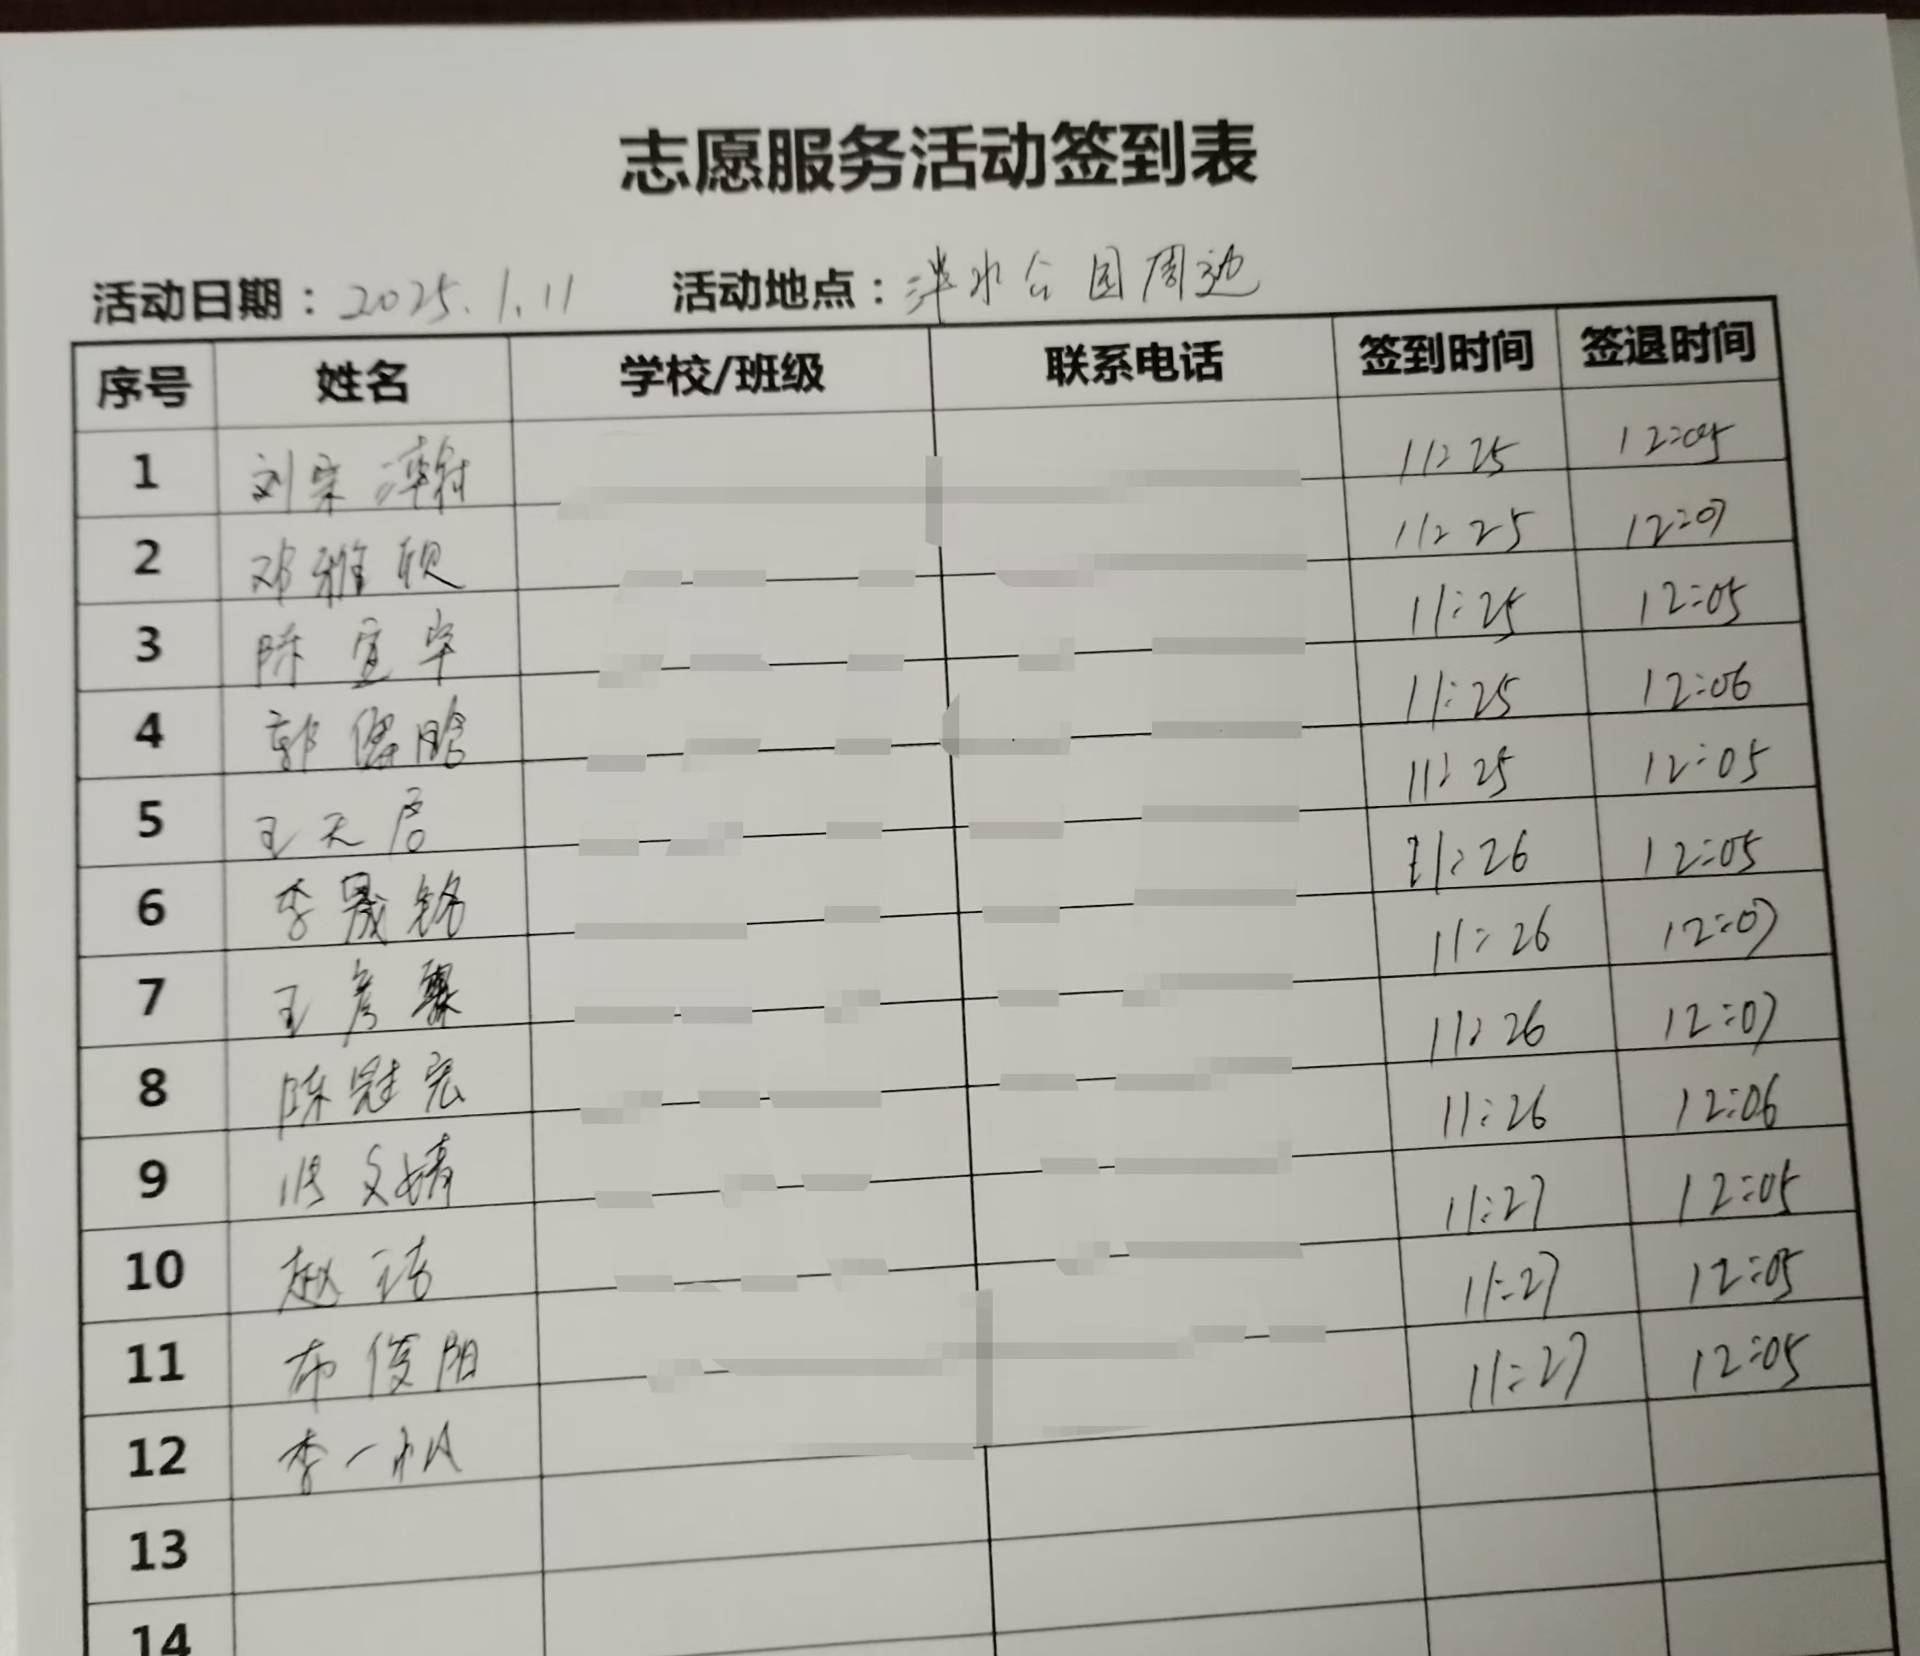 志愿服务活动签到表
活动日期：2025.1.11 活动地点：泮水公园周边
序号 姓名 学校/班级 联系电话 签到时间 签退时间
1 刘宗 11:25 12:05
2 邓雅 11:25 12:07
3 陈宜华 11:25 12:05
4 郭 11:25 12:06
5 王天启 11:25 12:05
6 李晟铭 11:26 12:05
7 王彦霖 11:26 12:07
8 陈冠宏 11:26 12:07
9 文婧 11:26 12:06
10 赵 11:27 12:05
11 布俊阳 11:27 12:05
12 李一帆 11:27 12:05
13
14